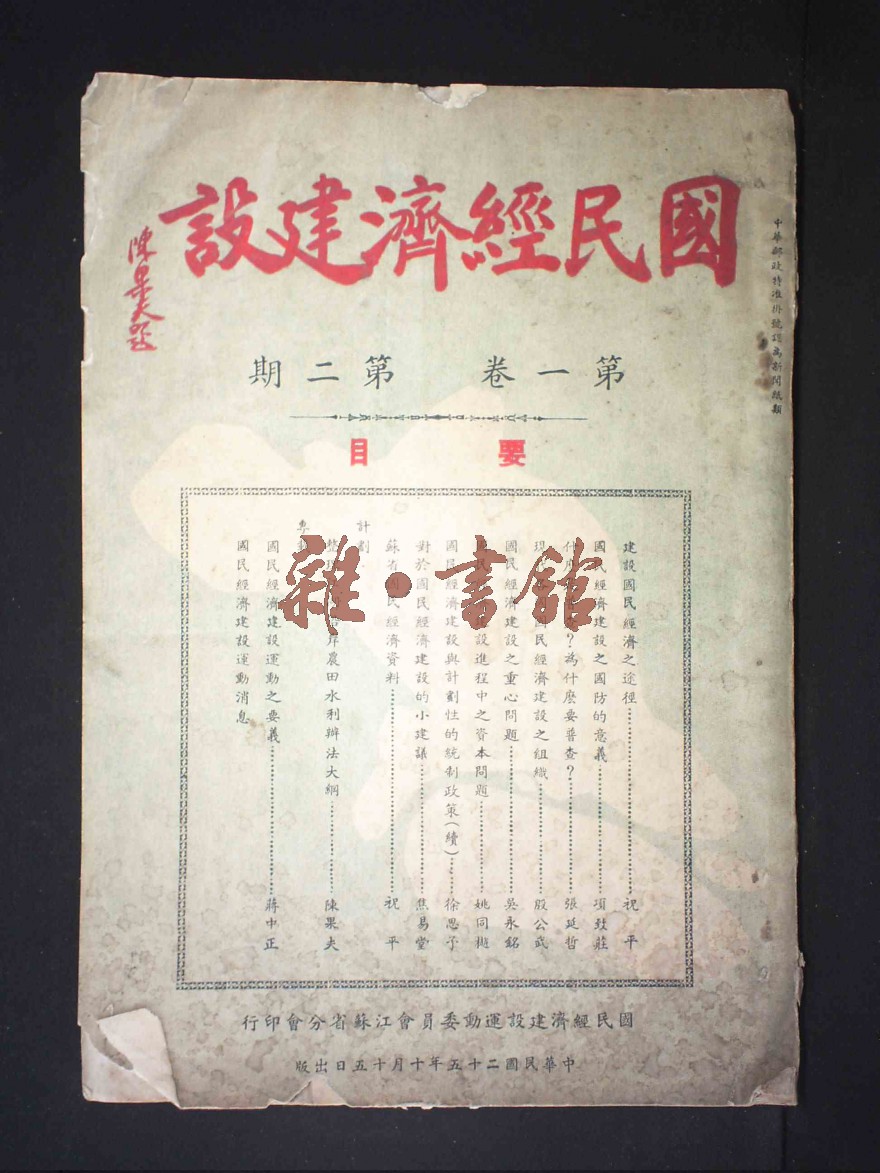 國民經濟建設
陳果夫題
中華郵政特准掛號認為新聞紙類
第一卷 第二期
要目
建設國民經濟之途徑……祝平
國民經濟建設之國防的意義……項致莊
什麼?為什麼要普查?……張延哲
現國民經濟建設之組織……殷公武
國民經濟建設之重心問題……吳永銘
國民設進程中之資本問題……姚同樾
國民經濟建設與計劃性的統制政策(續)……徐思予
對於國民經濟建設的小建議……焦易堂
蘇省國民經濟資料……祝平
計劃
整岸農田水利辦法大綱……陳果夫
專
國民經濟建設運動之要義……蔣中正
國民經濟建設運動消息
國民經濟建設運動委員會江蘇省分會印行
中華民國二十五年十月十五日出版
雜·書館